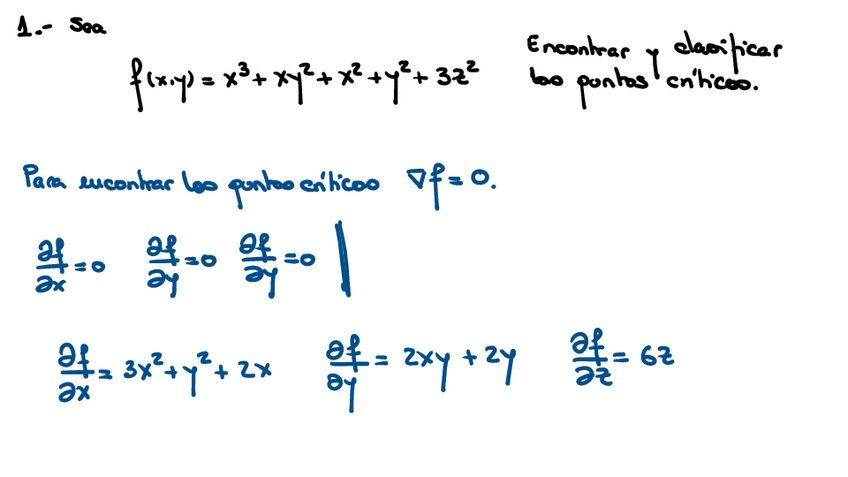 1.- Sea
f(x,y) = x³ + xy² + x² + y² + 3z²
Encontrar y clasificar
los puntos críticos.
Para encontrar los puntos críticos ∇f = 0.
∂f/∂x = 0 ∂f/∂y = 0 ∂f/∂y = 0 |
∂f/∂x = 3x² + y² + 2x ∂f/∂y = 2xy + 2y ∂f/∂z = 6z